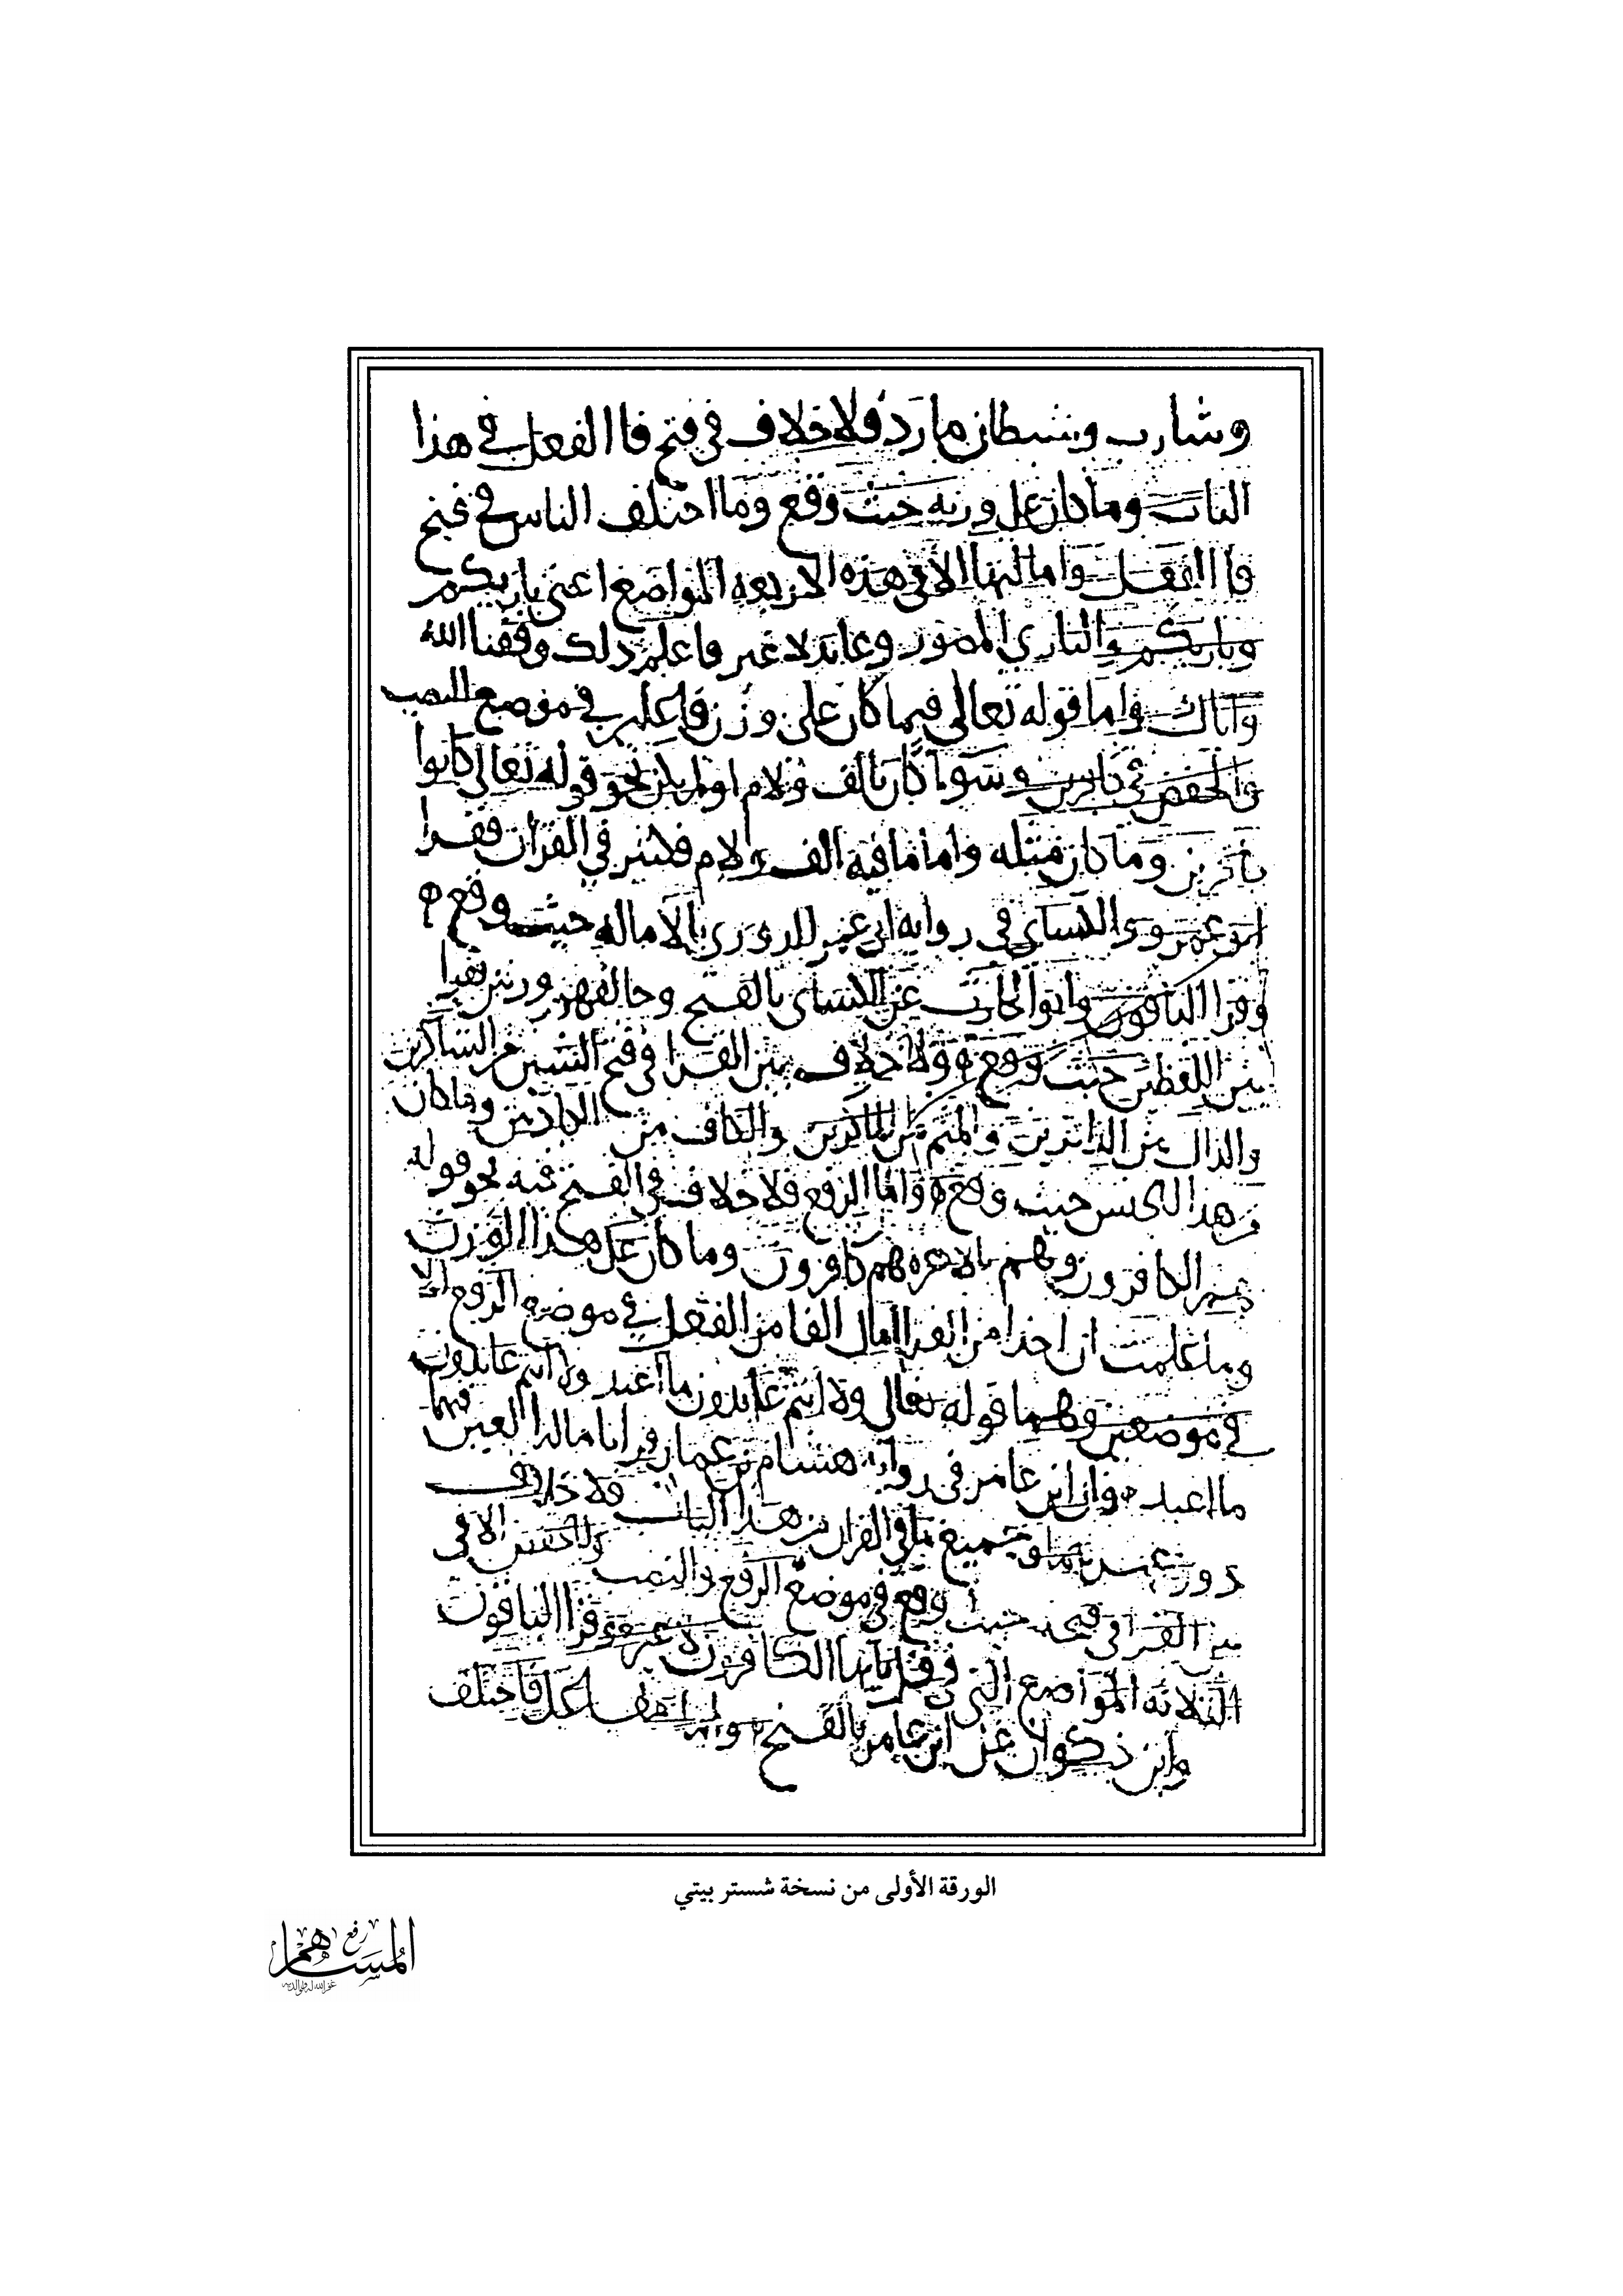 وشارب وشيطان مارد فلا خلاف في فتح فا الفعل في هذا
الباب وما كان على وزنه حيث وقع وما اختلف الناس في فتح
فا الفعل وامالتها الا في هذه الاربعه المواضع اعني بارئكم
وبارئكم والباري المصور وعابد لا غير فاعلم ذلك وفقنا الله
واياك واما قوله تعالى فيما كان على وزن فاعلين في موضع النصب
والخفض في كافرين وسوآ كان بالف ولام او لم يكن نحو قوله تعالى كانوا
كافرين وما كان مثله واما ما فيه الف ولام فكثير في القران فقرا
ابو عمرو والكساي في روايه ابي عمر الدوري بالاماله حيث وقع
وقرا الباقون وابو الحارث عن الكساي بالفتح وخالفهم ورش فقرا
بين اللفظين حيث وقع ولا خلاف بين القرا في فتح الشين من الشاكرين
والذال من الذاكرين والميم من الماكرين والكاف من الكاذبين وما كان
وهذا الجنس حيث وقع واما الرفع فلا خلاف في الفتح فيه نحو قوله
الكافرون وهم بالاخره هم كافرون وما كان على هذا الوزن
وما علمت ان احدا من القرا امال الفا من الفعل في موضع الرفع الا
في موضعين وهما قوله تعالى ولا انتم عابدون ما اعبد ولا انتم عابدون
ما اعبد فان ابن عامر في روايه هشام بن عمار قرا بامالة العين فيهما
دون غيرهما وجميع ما في القران من هذا الباب فلا خلاف
بين القرا في فتحه حيث وقع في موضع الرفع والنصب والخفض الا في
الثلاثه المواضع التي في قل يايها الكافرون وقرا الباقون
وابن ذكوان عن ابن عامر بالفتح فاختلف
الورقة الأولى من نسخة شستر بيتي
رفع
المساهم
غفر الله له ولوالديه